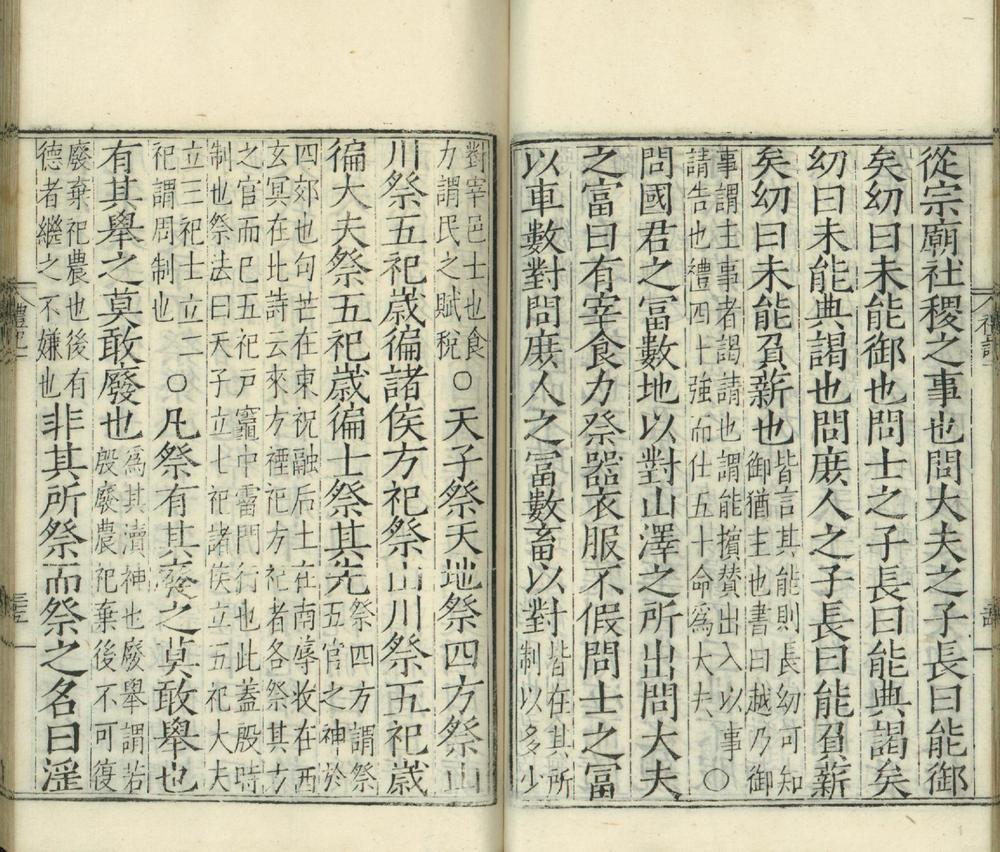 從宗廟社稷之事也問大夫之子長曰能御
矣幼曰未能御也問士之子長曰能典謁矣
幼曰未能典謁也問庶人之子長曰能負薪
矣幼曰未能負薪也
皆言其能則長幼可知
御猶主也書曰越乃御
事謂主事者謁請也謂能擯贊出入以事
請告也禮四十強而仕五十命爲大夫
○
問國君之富數地以對山澤之所出問大夫
之富曰有宰食力祭器衣服不假問士之富
以車數對問庶人之富數畜以對
皆在其所
制以多少
對宰邑士也食
力謂民之賦稅
○天子祭天地祭四方祭山
川祭五祀歲徧諸侯方祀祭山川祭五祀歲
徧大夫祭五祀歲徧士祭其先
祭四方謂祭
五官之神於
四郊也句芒在東祝融后土在南蓐收在西
玄冥在北詩云來方禋祀方祀者各祭其方
之官而已五祀戶竈中霤門行也此蓋殷時
制也祭法曰天子立七祀諸侯立五祀大夫
立三祀士立二
祀謂周制也
○凡祭有其廢之莫敢舉也
有其舉之莫敢廢也
爲其瀆神也廢舉謂若
殷廢農祀棄後不可復
廢棄祀農也後有
德者繼之不嫌也
非其所祭而祭之名曰淫
禮記一
三五